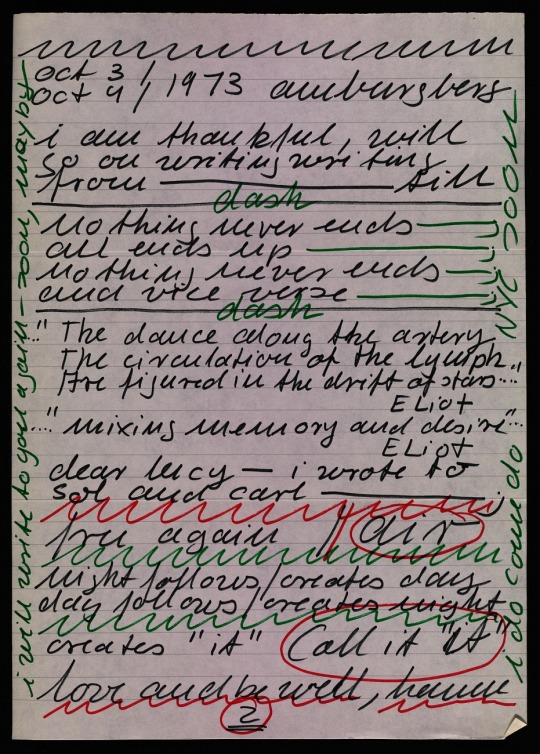 oct 3 /
oct 4 / 1973 amburgberg
i am thankful, will
go on writing writing
from ———— till
dash
nothing never ends ——
all ends up ————
nothing never ends ——
and vice verse ———
dash
..." The dance along the artery
The circulation of the lymph
Are figured in the drift of stars..."
ELiot
..."mixing memory and desire"...
ELiot
dear lucy — i wrote to
sol and carl ————
free again / air
night follows/creates day
day follows/creates night
creates "it" Call it "it"
love and be well, hanne
2
i will write to you again — soon, maybe
i do come do NYC soon